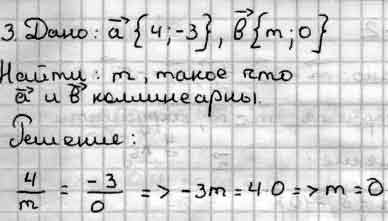 3. Дано: a⃗ {4;-3}, b⃗ {m;0}
Найти: m, такое что
a⃗ и b⃗ коллинеарны.
Решение:
4/m = -3/0 => -3m = 4·0 => m = 0